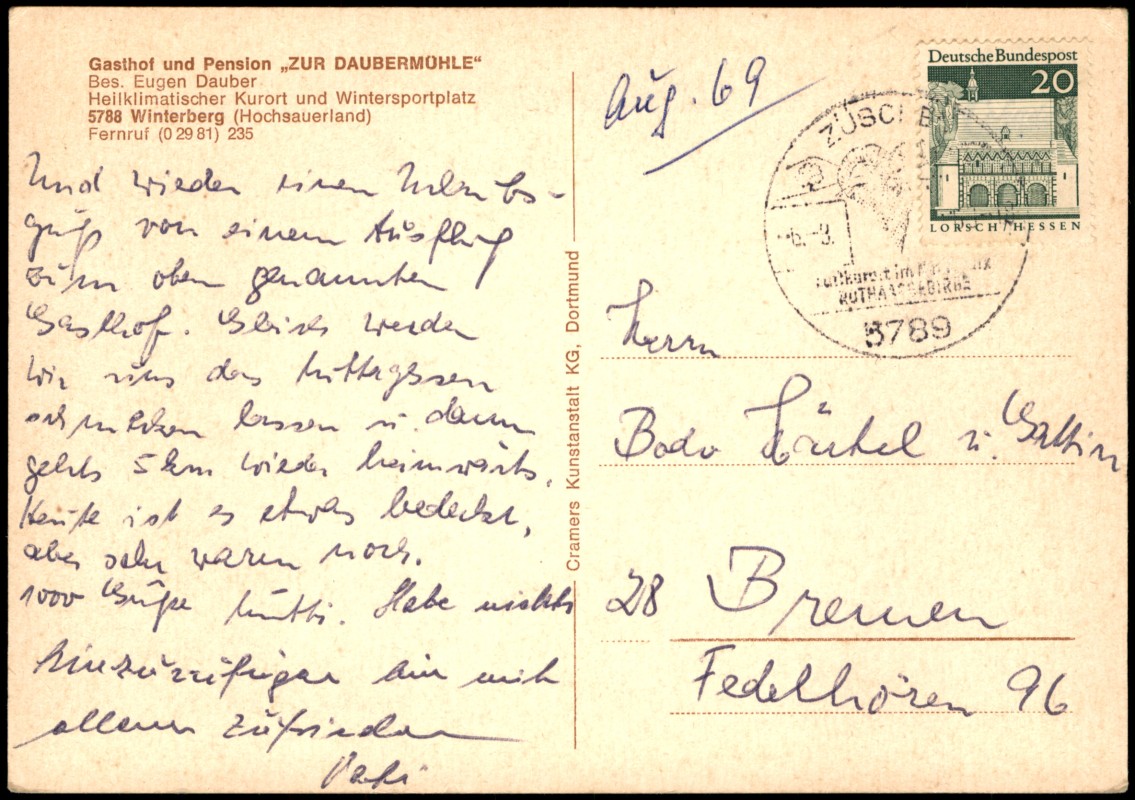 Gasthof und Pension „ZUR DAUBERMÜHLE“
Bes. Eugen Dauber
Heilklimatischer Kurort und Wintersportplatz
5788 Winterberg (Hochsauerland)
Fernruf (0 29 81) 235
Und wieder einen Urlaubs-
gruß von einem Ausflug
zum oben genannten
Gasthof. Gleich werden
wir uns das Mittagessen
schmecken lassen u. dann
gehts 5 km wieder heimwärts.
Heute ist es etwas bedeckt,
aber sehr warm noch.
1000 Grüße Mutti. Habe nichts
hinzuzufügen bin mit
allem zufrieden
Vati
Cramers Kunstanstalt KG, Dortmund
Aug. 69
Deutsche Bundespost
20
LORSCH/HESSEN
ZÜSCHEN
im
ROTHAARGEBIRGE
5789
Herrn
Bodo Härtel u. Gattin
28 Bremen
Fedelhören 96